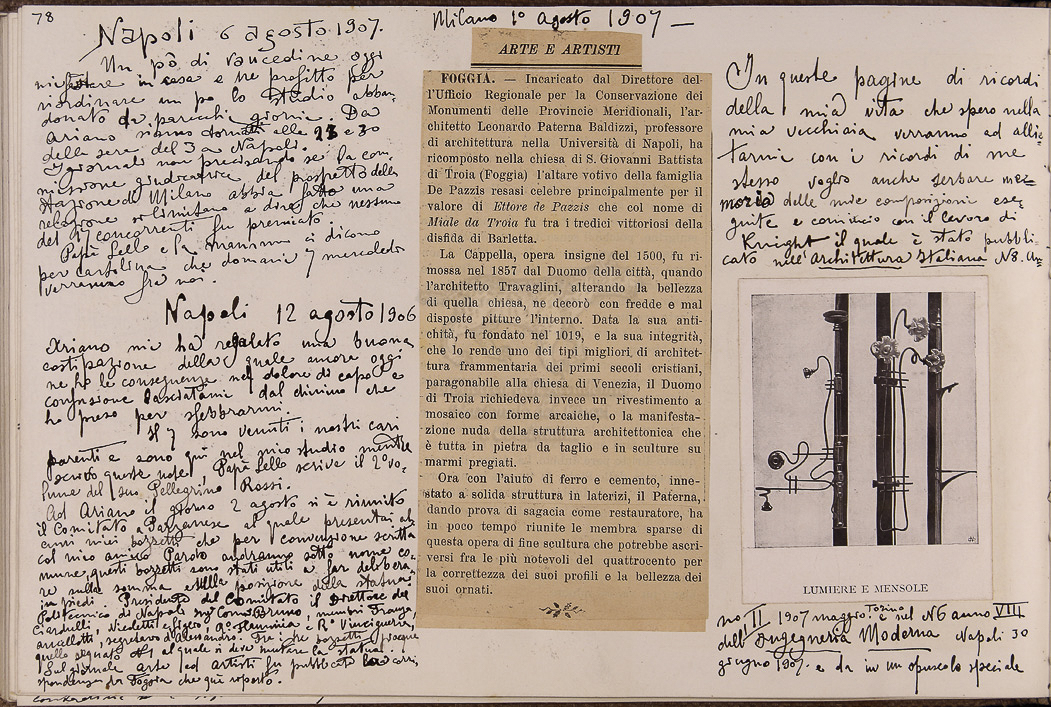 78
Napoli 6 agosto 1907.
Un pò di raucedine oggi
in casa e ne profitto per
riordinare un po lo studio abban-
donato da parecchi giorni. Da
Ariano siamo tornati alle 23 e 30
della sera del 3 a Napoli.
I giornali non precisando se la com-
missione giudicatrice del prospetto della
Stazione di Milano abbia fatto una
relazione si limitano a dire che nessuno
dei 17 concorrenti fu premiato.
Papà Lello e la mamma ci dicono
per cartolina che domani 7 mercoledì
verranno fra noi.
Napoli 12 agosto 1906
Ariano mi ha regalato una buona
costipazione della quale ancora oggi
ne ho le conseguenze nel dolore di capo e
confusione lasciatami dal chinino che
ho preso per sfebbrarmi.
Il 7 sono venuti i nostri cari
parenti e sono qui nel mio studio mentre
scrivo queste note Papà Lello scrive il 2° vo-
lume del suo Pellegrino Rossi.
Ad Ariano il giorno 2 agosto si è riunito
il Comitato a Parzanese al quale presentai al-
cuni miei bozzetti che per convenzione scritta
col mio amico Paroto andranno sotto nome co-
mune, questi bozzetti sono stati utili a far delibera-
re sulla somma e sulla posizione della statua:
in piedi. Presidente del Comitato il Direttore del
Politecnico di Napoli Comm Bruno, membri
Ciardulli, Nicoletti
segretario d'Alessandro. Fra i tre bozzetti piacque
quello segnato al quale si deve mutare la statua.
Sul giornale arte ed artisti fu pubblicata la corri-
spondenza da Foggia che qui riporto.
Milano 1° agosto 1907 —
ARTE E ARTISTI
FOGGIA. — Incaricato dal Direttore del-
l'Ufficio Regionale per la Conservazione dei
Monumenti delle Provincie Meridionali, l'ar-
chitetto Leonardo Paterna Baldizzi, professore
di architettura nella Università di Napoli, ha
ricomposto nella chiesa di S. Giovanni Battista
di Troia (Foggia) l'altare votivo della famiglia
De Pazzis resasi celebre principalmente per il
valore di Ettore de Pazzis che col nome di
Miale da Troia fu tra i tredici vittoriosi della
disfida di Barletta.
La Cappella, opera insigne del 1500, fu ri-
mossa nel 1857 dal Duomo della città, quando
l'architetto Travaglini, alterando la bellezza
di quella chiesa, ne decorò con fredde e mal
disposte pitture l'interno. Data la sua anti-
chità, fu fondato nel 1019, e la sua integrità,
che lo rende uno dei tipi migliori di architet-
tura frammentaria dei primi secoli cristiani,
paragonabile alla chiesa di Venezia, il Duomo
di Troia richiedeva invece un rivestimento a
mosaico con forme arcaiche, o la manifesta-
zione nuda della struttura architettonica che
è tutta in pietra da taglio e in sculture su
marmi pregiati.
Ora con l'aiuto di ferro e cemento, inne-
stato a solida struttura in laterizi, il Paterna,
dando prova di sagacia come restauratore, ha
in poco tempo riunite le membra sparse di
questa opera di fine scultura che potrebbe ascri-
versi fra le più notevoli del quattrocento per
la correttezza dei suoi profili e la bellezza dei
suoi ornati.
In queste pagine di ricordi
della mia vita che spero nella
mia vecchiaia verranno ad allie-
tarmi con i ricordi di me
stesso voglio anche serbare me-
moria delle mie composizioni ese-
guite e comincio con il lavoro di
Knight il quale è stato pubbli-
cato nell'Architettura Italiana N8. an-
LUMIERE E MENSOLE
no II 1907 maggio. Torino e nel N6 anno VIII
dell'Ingegneria Moderna Napoli 30
giugno 1907. e da in un opuscolo speciale